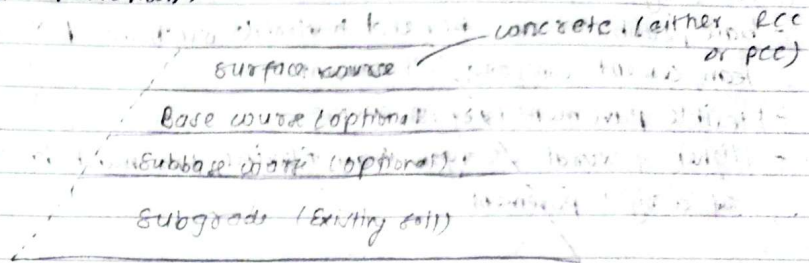 concrete. (either RCC
or PCC)
surface course
Base course (optional
Subbase (optional)
Subgrade (Existing soil)